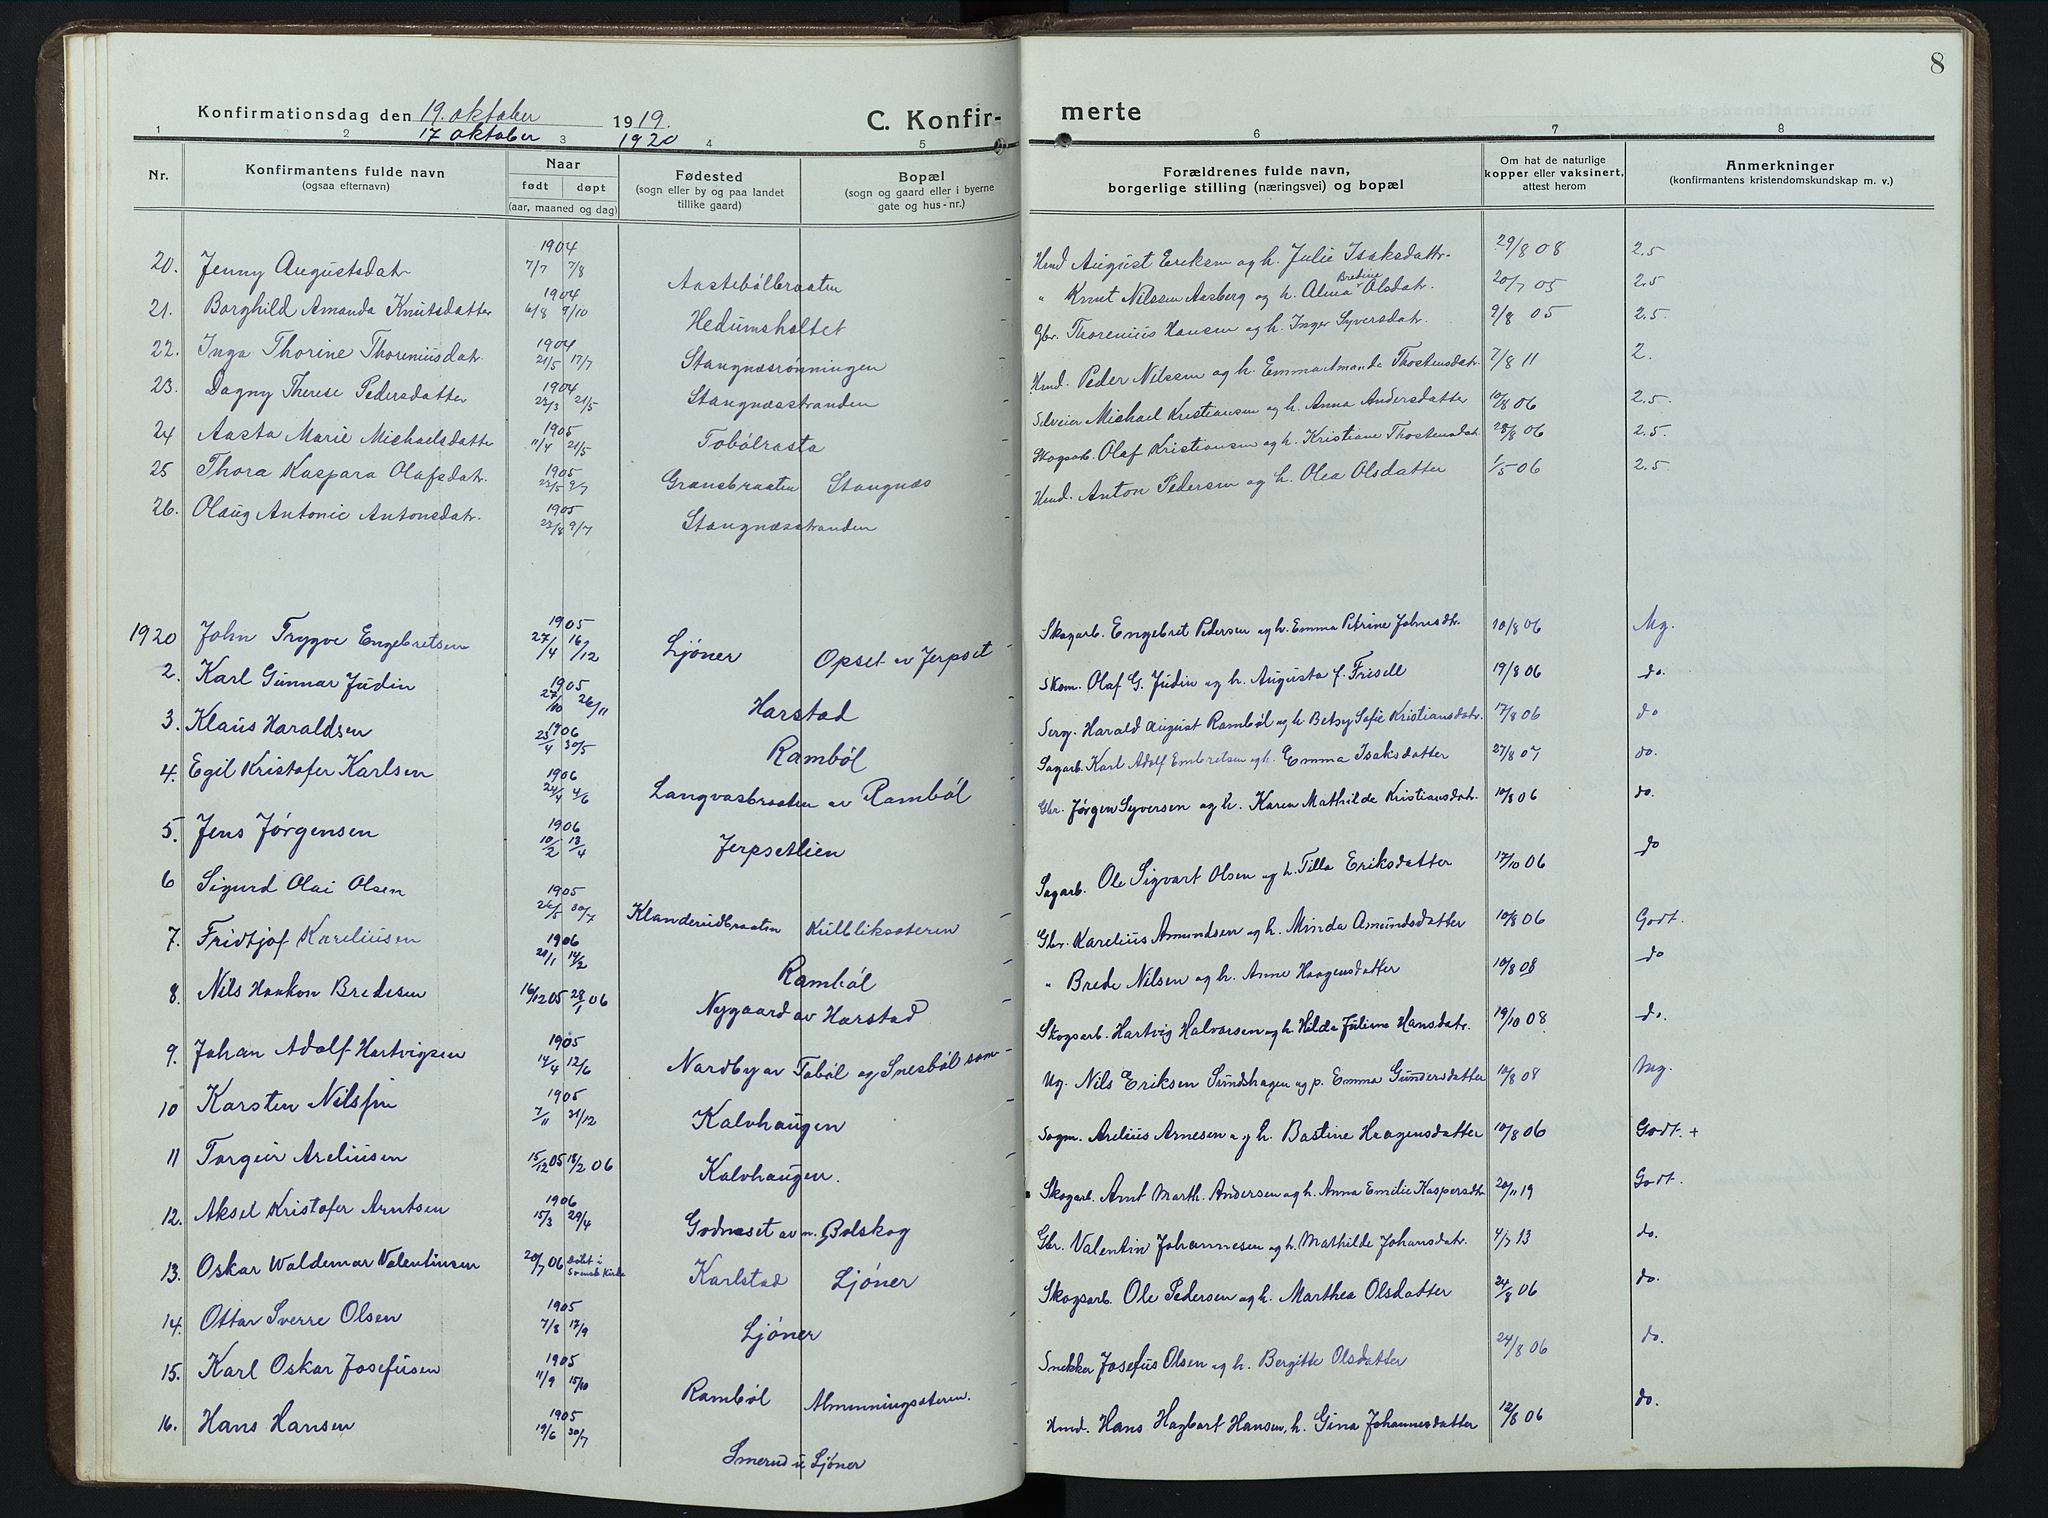 8
Konfirmationsdag den 19. oktober 1919.
17 oktober 1920
C. Konfirmerte
1 2 3 4 5 6 7 8
Nr. Konfirmantens fulde navn (ogsaa efternavn) Naar født døpt (aar, maaned og dag) Fødested (sogn eller by og paa landet tillike gaard) Bopæl (sogn og gaard eller i byerne gate og hus-nr.) Forældrenes fulde navn, borgerlige stilling (næringsvei) og bopæl Om hat de naturlige kopper eller vaksinert, attest herom Anmerkninger (konfirmantens kristendomskundskap m. v.)
20. Jenny Augustsdatr 1904 7/7 7/8 Aastebölbraaten Hmd August Eriksen og h. Julie Isaksdattr. 29/8 08 2.5
21. Borghild Amanda Knutsdatter 1904 6/8 9/10 Hedumsholtet " Knut Nilssen Aasberg og h. Alma Bredine Olsdatr. 20/7 05 2.5
22. Inga Thorine Thoreniusdatr. 1904 21/5 17/7 Stangnæsrönningen Gbr. Thorenius Hansen og h. Inger Syversdatr. 9/8 05 2.5.
23. Dagny Therese Pedersdatter 1904 22/3 21/5 Stangnæsstranden Hmd. Peder Nilssen og h. Emma Amande Thostensdatr. 7/8 11 2.
24 Aasta Marie Michaelsdatter 1905 11/4 21/5 Tobölrasta Selveier Michael Kristiansen og h. Anna Andersdatter 10/8 06 2.5.
25 Thora Kaspara Olafsdatr. 1905 22/5 9/7 Grænsbraaten Stangnæs Skogsarb. Olaf Kristiansen og h. Kristiane Thostensdatr. 28/8 06 2.5.
26. Olaug Antonie Antonsdatr. 1905 22/8 9/7 Stangnæsstranden Hmd. Anton Pedersen og h. Olea Olsdatter 1/5 06 2.5.
1920 John Trygve Engebretsen 1905 27/4 16/12 Ljöner Opset av Jerpset Skogarb. Engebret Pedersen og h. Emma Petrine Johnsdtr. 10/8 06 Mg.
2. Karl Gunnar Judin 1905 27/10 26/11 Harstad Skom. Olaf G. Judin og h. Augusta f. Frisell 19/8 06 do.
3. Klaus Haraldsen 1906 23/4 30/5 Ramböl Serg. Harald August Ramböl og h Betsy Sofie Kristiansdatr. 17/8 06 do
4. Egil Kristofer Karlsen 1906 24/4 4/6 Langvasbraaten av Ramböl Sagarb. Karl Adolf Embretsen og h. Emma Isaksdatter 27/8 07 do.
5. Jens Jörgensen 1906 10/2 13/4 Jerpsetlien Gbr. Jørgen Syversen og h. Karen Mathilde Kristiansdatr. 10/8 06 do.
6 Sigurd Olai Olsen 1905 26/5 30/7 Klanderudbraaten Kulbliksæteren Sagarb. Ole Sigvart Olsen og h. Tilla Eriksdatter 17/10 06 do
7. Fridtjof Kareliusen 1906 21/1 14/2 Ramböl Gbr. Karelius Amundsen og h. Minda Amundsdatter 10/8 06 Godt.
8. Nils Haakon Bredesen 16/12 05 28/1 06 Nygaard av Harstad " Brede Nilsen og h. Anne Haagensdatter 10/8 08 do
9. Johan Adolf Hartvigsen 1905 14/4 12/6 Nordby av Toböl og Snesböl som Skogsarb. Hartvig Halvorsen og h Hilda Juliane Hansdatr. 19/10 08 do.
10 Karsten Nilsen 1905 7/11 21/12 Kalvhaugen Ug. Nils Eriksen Sundshagen og p. Emma Gundersdatter 10/8 08 Mg.
11 Torgeir Areliusen 15/12 05 18/2 06 Kalvhaugen. Sagm. Arelius Arnesen og h. Bastine Haagensdatter 10/8 06 Godt. +
12. Aksel Kristofer Arntsen 1906 15/3 29/4 Godnæset av n. Bolskog Skogarb. Arnt Marth. Andersen og h. Anna Emilie Kaspersdtr 20/11 19 Godt.
13. Oskar Waldemar Valentinsen 20/7 06 Döbt i Svensk Kirke Karlstad Ljöner Gbr. Valentin Johannesen og h. Mathilde Johansdatr. 4/7 13 do.
14. Ottar Sverre Olsen 1905 7/8 17/9 Ljöner Skogsarb. Ole Pedersen og h. Marthea Olsdatter 24/8 06 do.
15. Karl Oskar Josefusen 1905 11/9 15/10 Ramböl Almenningsæteren. Snekker Josefus Olsen og h. Bergitte Olsdatter 24/8 06 do.
16. Hans Hansen 1905 19/6 30/7 Smerud u Ljöner Hmd. Hans Hagbart Hansen, h. Gina Johannesdatter 12/8 06 do.